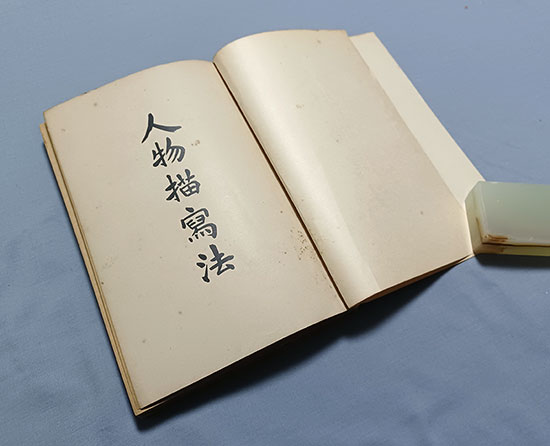 人物描寫法